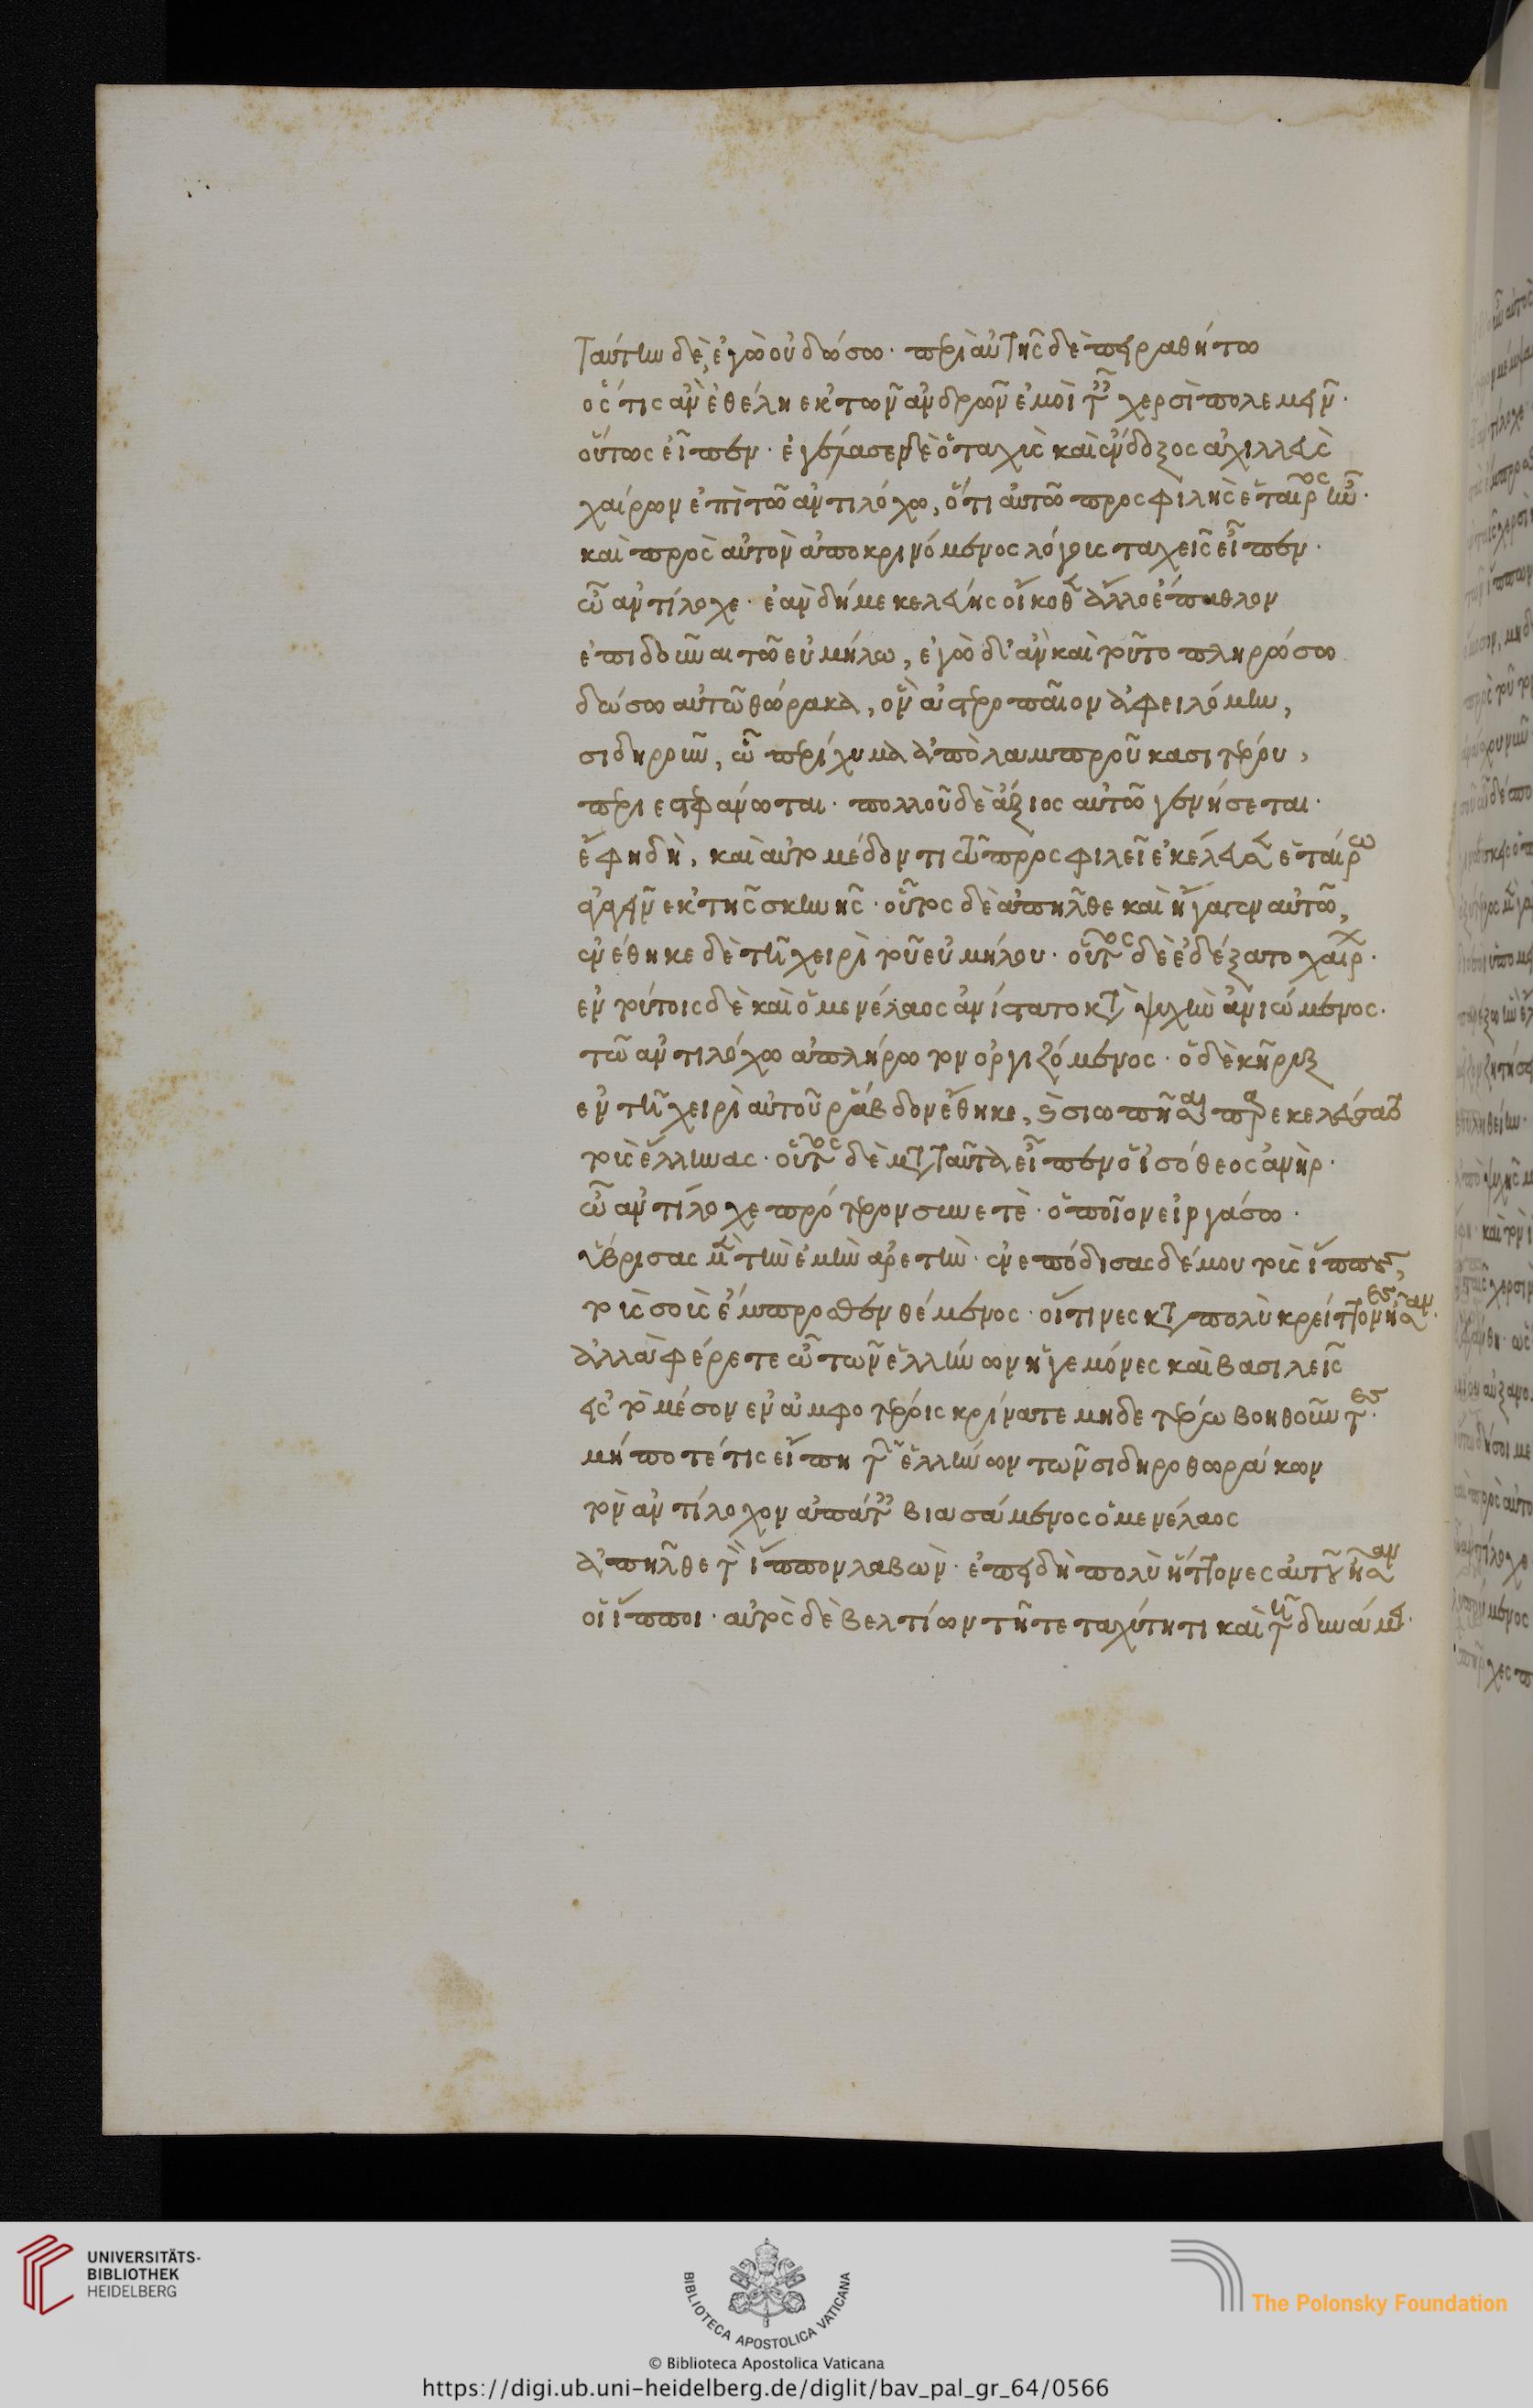 ταύτην δὲ ἐγὼ οὐ δώσω· περὶ αὐτῆς δὲ πειραθήτω
ὅς τις ἂν ἐθέλη ἐκ τῶν ἀνδρῶν ἐμοὶ ταῖς χερσὶ πολεμεῖν·
οὕτως εἶπεν· ἐγέλασεν δὲ ὁ ταχὺς καὶ ἔνδοξος ἀχιλλεὺς
χαίρων ἐπὶ τῶ ἀντιλόχω, ὅτι αὐτῶ προσφιλὴς ἑταῖρος ἦν·
καὶ πρὸς αὐτὸν ἀποκρινόμενος λόγοις ταχεῖς εἶπεν·
ὦ ἀντίλοχε· ἐὰν δή με κελεύης οἴκοθεν ἄλλο ἔπαθλον
ἐπιδοῦναι τῶ εὐμήλω, ἐγὼ δι' ἂν καὶ τοῦτο πληρώσω
δώσω αὐτῶ θώρακα, ὃν ἀστεροπαῖον ἀφειλόμην,
σιδηροῦν, ὧ περίχυμα ἀπὸ λαμπροῦ κασιτέρου,
περιεστεφάνωται· πολλοῦ δὲ ἄξιος αὐτῶ γενήσεται·
ἔφη δὴ, καὶ αὐτομέδοντι τῶ προσφιλεῖ ἐκέλευσεν ἑταίρω
ἀγαγεῖν ἐκ τῆς σκηνῆς· οὗτος δὲ ἀπῆλθε καὶ ἤγαγεν αὐτῶ,
ἐνέθηκε δὲ τῆ χειρὶ τοῦ εὐμήλου· οὗτος δὲ ἐδέξατο χαίρων·
ἐν τούτοις δὲ καὶ ὁ μενέλαος ἀνίστατο κατὰ ψυχὴν ἀνιώμενος·
τῶ ἀντιλόχω ἀπλήρωτον ὀργιζόμενος· ὁ δὲ κῆρυξ
ἐν τῆ χειρὶ αὐτοῦ ῥάβδον ἔθηκε, καὶ σιωπῆσαι παρεκελεύσατο
τοὺς ἕλληνας· οὗτος δὲ μετὰ ταῦτα εἶπεν ὁ ἰσόθεος ἀνήρ·
ὦ ἀντίλοχε πρότερον συνετὲ· ὁποῖον εἰργάσω·
ὕβρισας μὲν τὴν ἐμὴν ἀρετὴν· ἐνεπόδισας δέ μου τοὺς ἵππους,
τοὺς σοὺς ἔμπροσθεν θέμενος· οἵτινες κατὰ πολὺ κρείττονες ἦσαν·
ἀλλὰ φέρετε ὦ τῶν ἑλλήνων ἡγεμόνες καὶ βασιλεῖς
εἰς τὸ μέσον ἐν ἀμφοτέροις κρίνατε μηδετέρω βοηθοῦντες·
μήποτέ τις εἴπη τῶν ἑλλήνων τῶν σιδηροθωράκων
τὸν ἀντίλοχον ἀπάταις βιασάμενος ὁ μενέλαος
ἀπῆλθε τὴν ἵππον λαβὼν· ἐπειδὴ πολὺ ἥττονες αὐτοῦ ἦσαν
οἱ ἵπποι· αὐτὸς δὲ βελτίων τῆ τε ταχύτητι καὶ τῆ δυνάμει·
UNIVERSITÄTS-
BIBLIOTHEK
HEIDELBERG
BIBLIOTECA APOSTOLICA VATICANA
The Polonsky Foundation
© Biblioteca Apostolica Vaticana
https://digi.ub.uni-heidelberg.de/diglit/bav_pal_gr_64/0566